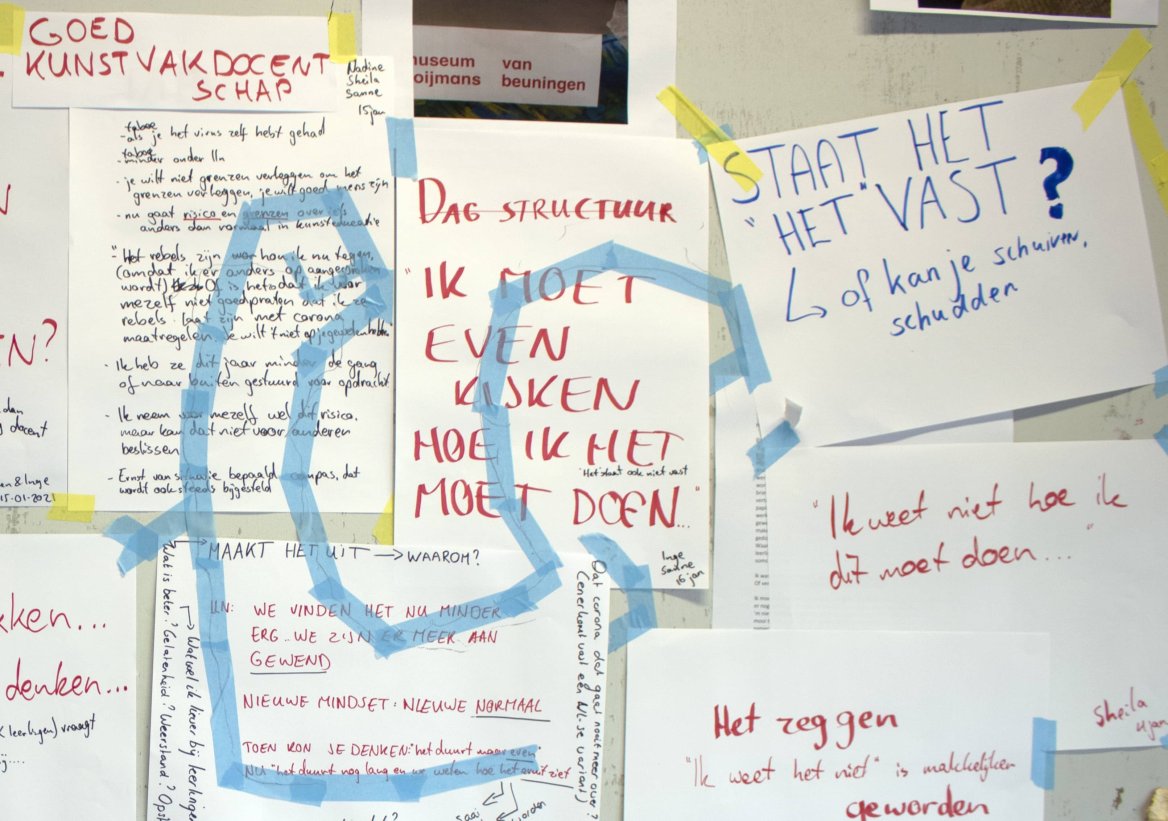 GOED
KUNSTVAKDOCENT
SCHAP
Nadine
Sheila
Sanne
15 jan
- als je het virus zelf hebt gehad
- minder onder lln
- je wilt niet grenzen verleggen om het
grenzen verleggen, je wilt goed mens zijn
- nu gaat risico en grenzen over iets
anders dan normaal in kunsteducatie
- "Het rebels zijn
(omdat ik er anders op aangesproken
wordt) Of is het dat ik voor
mezelf niet goedpraten dat ik ze
rebels laat zijn met corona
maatregelen, je wilt 't niet op je geweten hebben
- Ik heb ze dit jaar minder de gang
of naar buiten gestuurd voor opdracht
- Ik neem voor mezelf wel dit risico,
maar kan dat niet voor anderen
beslissen
- Ernst van situatie bepaald compas, dat
wordt ook steeds bijgesteld
museum van
beuningen
DAG STRUCTUUR
"IK MOET
EVEN
KIJKEN
HOE IK HET
"Het staat ook niet vast
MOET DOEN..."
Inge
Sanne
16 jan
STAAT HET
"HET" VAST?
of kan je schuiven,
schudden
"Ik weet niet hoe ik
dit moet doen..."
Sheila
Het zeggen
"Ik weet het niet" is makkelijker
geworden
EN?
docent
15-01-2021
denken...
(leerlingen) vraagt
MAAKT HET UIT → WAAROM?
LLN: WE VINDEN HET NU MINDER
ERG.. WE ZIJN ER MEER AAN
GEWEND
NIEUWE MINDSET: NIEUWE NORMAAL
TOEN KON JE DENKEN: "het duurt maar even"
NU "het duurt nog lang en we weten hoe het eruit ziet
saai
worden
Wat is beter? Gelatenheid? Weerstand?
→ Wat wel ik liever bij leerlingen
Dat corona dat gaat nooit meer over?
(en er komt vast een NL-se variant)